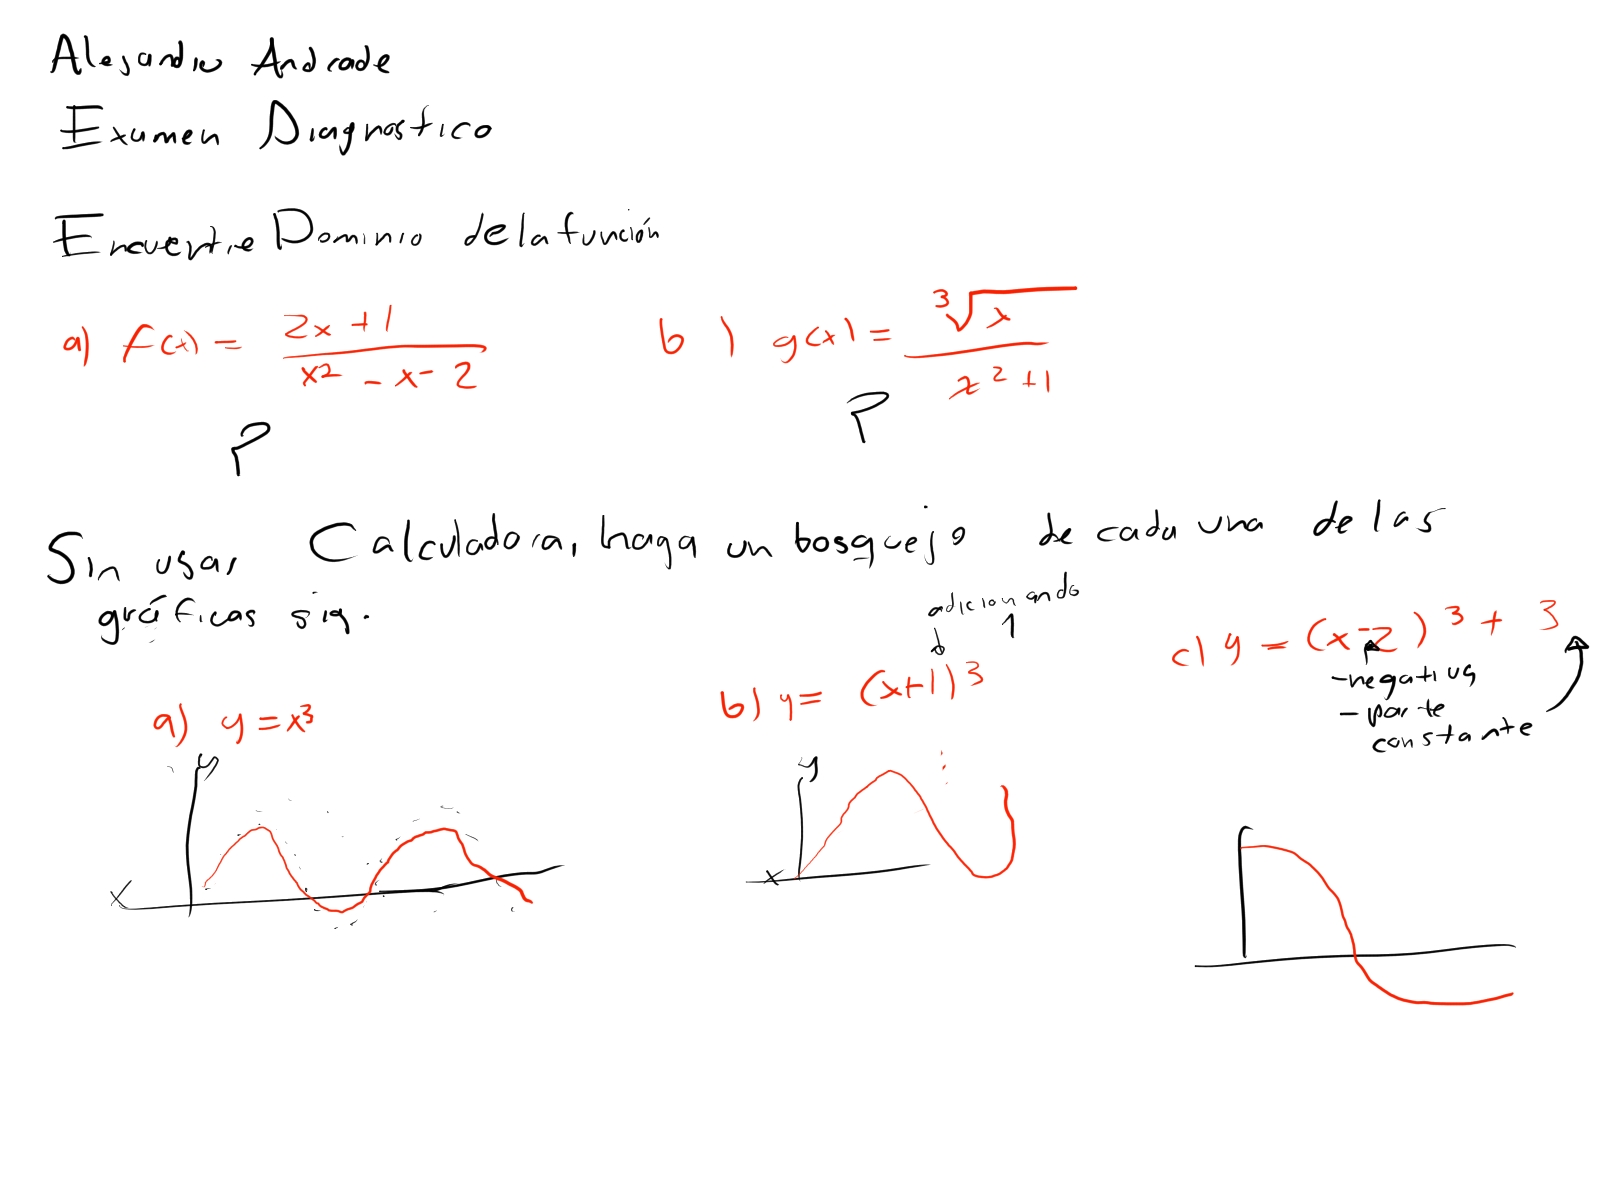 Alejandro Andrade
Examen Diagnostico
Encuentre Dominio de la función
a) f(x) = 2x + 1 / x² - x - 2
b) g(x) = ³√x / x² + 1
?
?
Sin usar Calculadora, haga un bosquejo de cada una de las
gráficas sig.
a) y = x³
adicionando
1
b) y = (x+1)³
c) y = (x-2)³ + 3
-negativa
- parte
constante
y
x
y
x